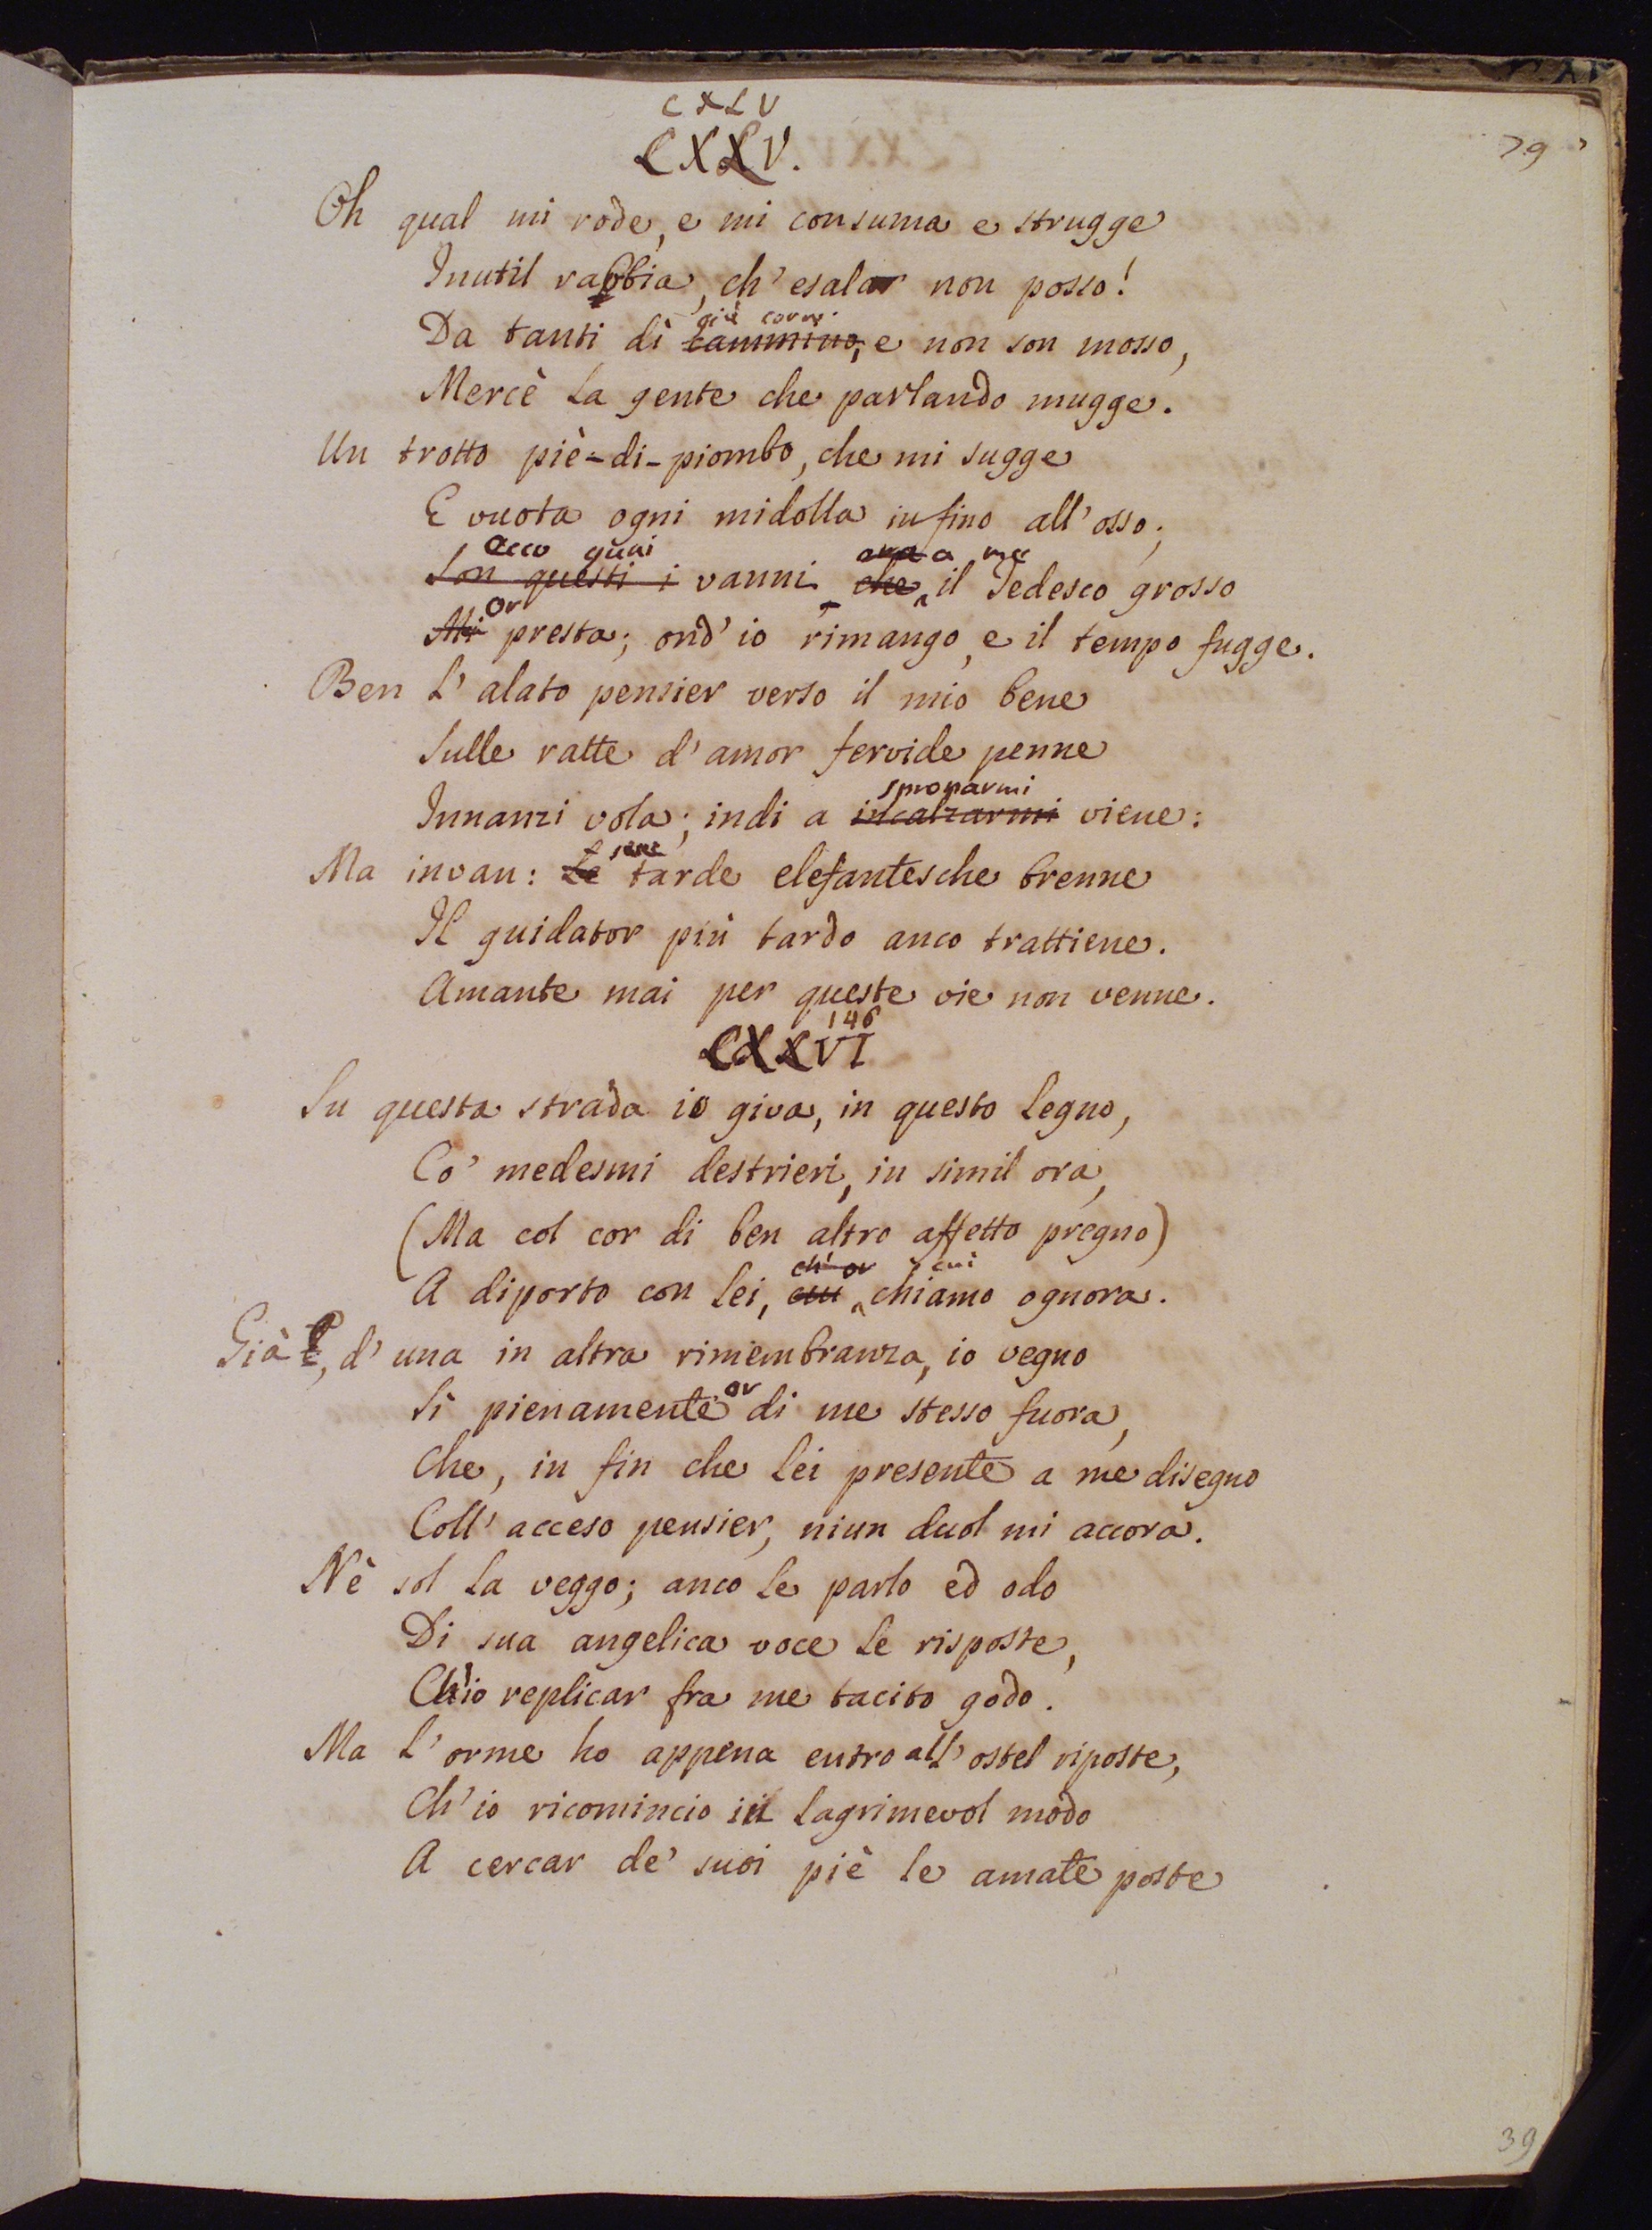 CXLV
79
CXXV.
Oh qual mi rode, e mi consuma e strugge
Inutil rabbia, ch' esalar non posso!
già corro
Da tanti dì cammino, e non son mosso,
Mercè la gente che parlando mugge.
Un trotto piè-di-piombo, che mi sugge
E vuota ogni midolla in fino all' osso;
Ecco quai a me
Son questi i vanni che il Tedesco grosso
Or
Mi presta; ond' io rimango, e il tempo fugge.
Ben l' alato pensier verso il mio bene
Sulle ratte d' amor fervide penne
spronarmi
Innanzi vola; indi a incalzarmi viene:
sene
Ma invan: Le tarde elefantesche brenne
Il guidator più tardo anco trattiene.
Amante mai per queste vie non venne.
146
CXXVI
Su questa strada io giva, in questo legno,
Co' medesmi destrieri, in simil ora,
(Ma col cor di ben altro affetto pregno)
ch' or cui
A diporto con lei, cui chiamo ognora.
Già, d' una in altra rimembranza, io vegno
or
Sì pienamente di me stesso fuora,
Che, in fin che lei presente a me disegno
Coll' acceso pensier, niun duol mi accora.
Nè sol la veggo; anco le parlo ed odo
Di sua angelica voce le risposte,
Ch'io replicar fra me tacito godo.
Ma l' orme ho appena entro all' ostel riposte,
Ch' io ricomincio in lagrimevol modo
A cercar de' suoi piè le amate poste
39